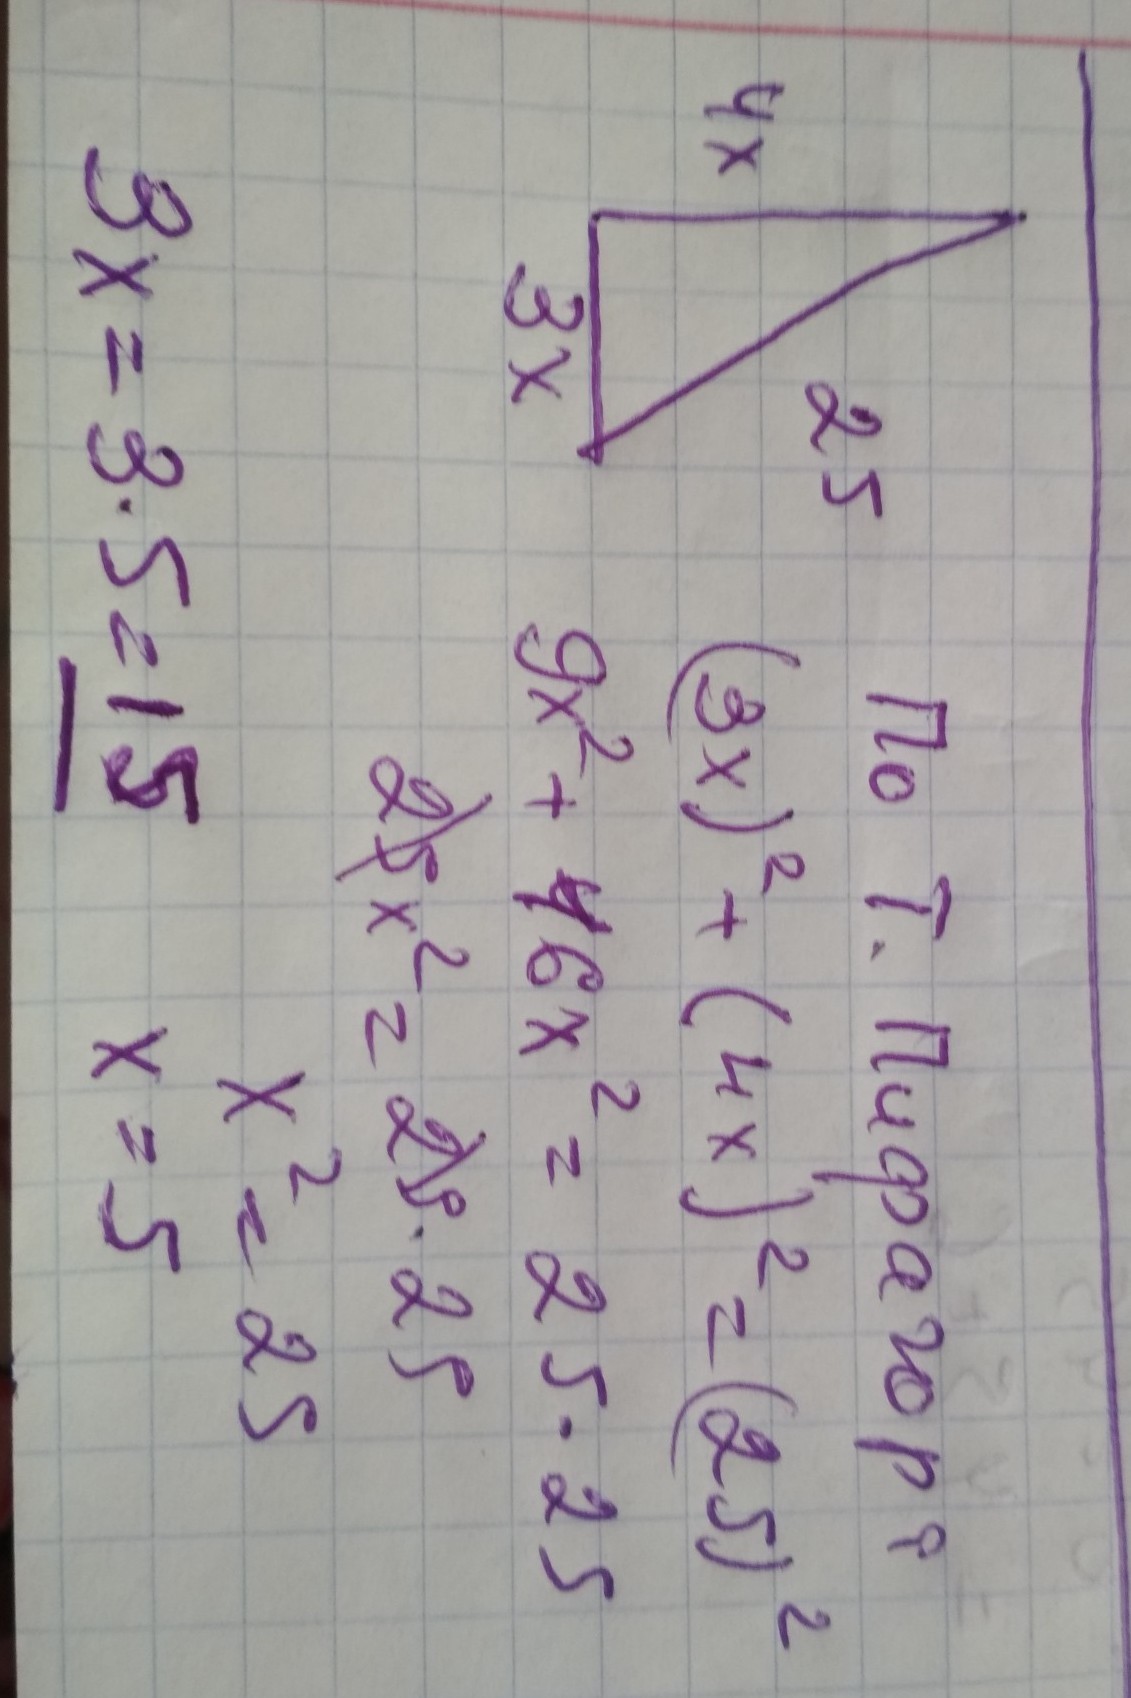 4x
25
3x
По т. Пифагора
(3x)² + (4x)² = (25)²
9x² + 16x² = 25 · 25
25x² = 25 · 25
x² = 25
x = 5
3x = 3 · 5 = 15